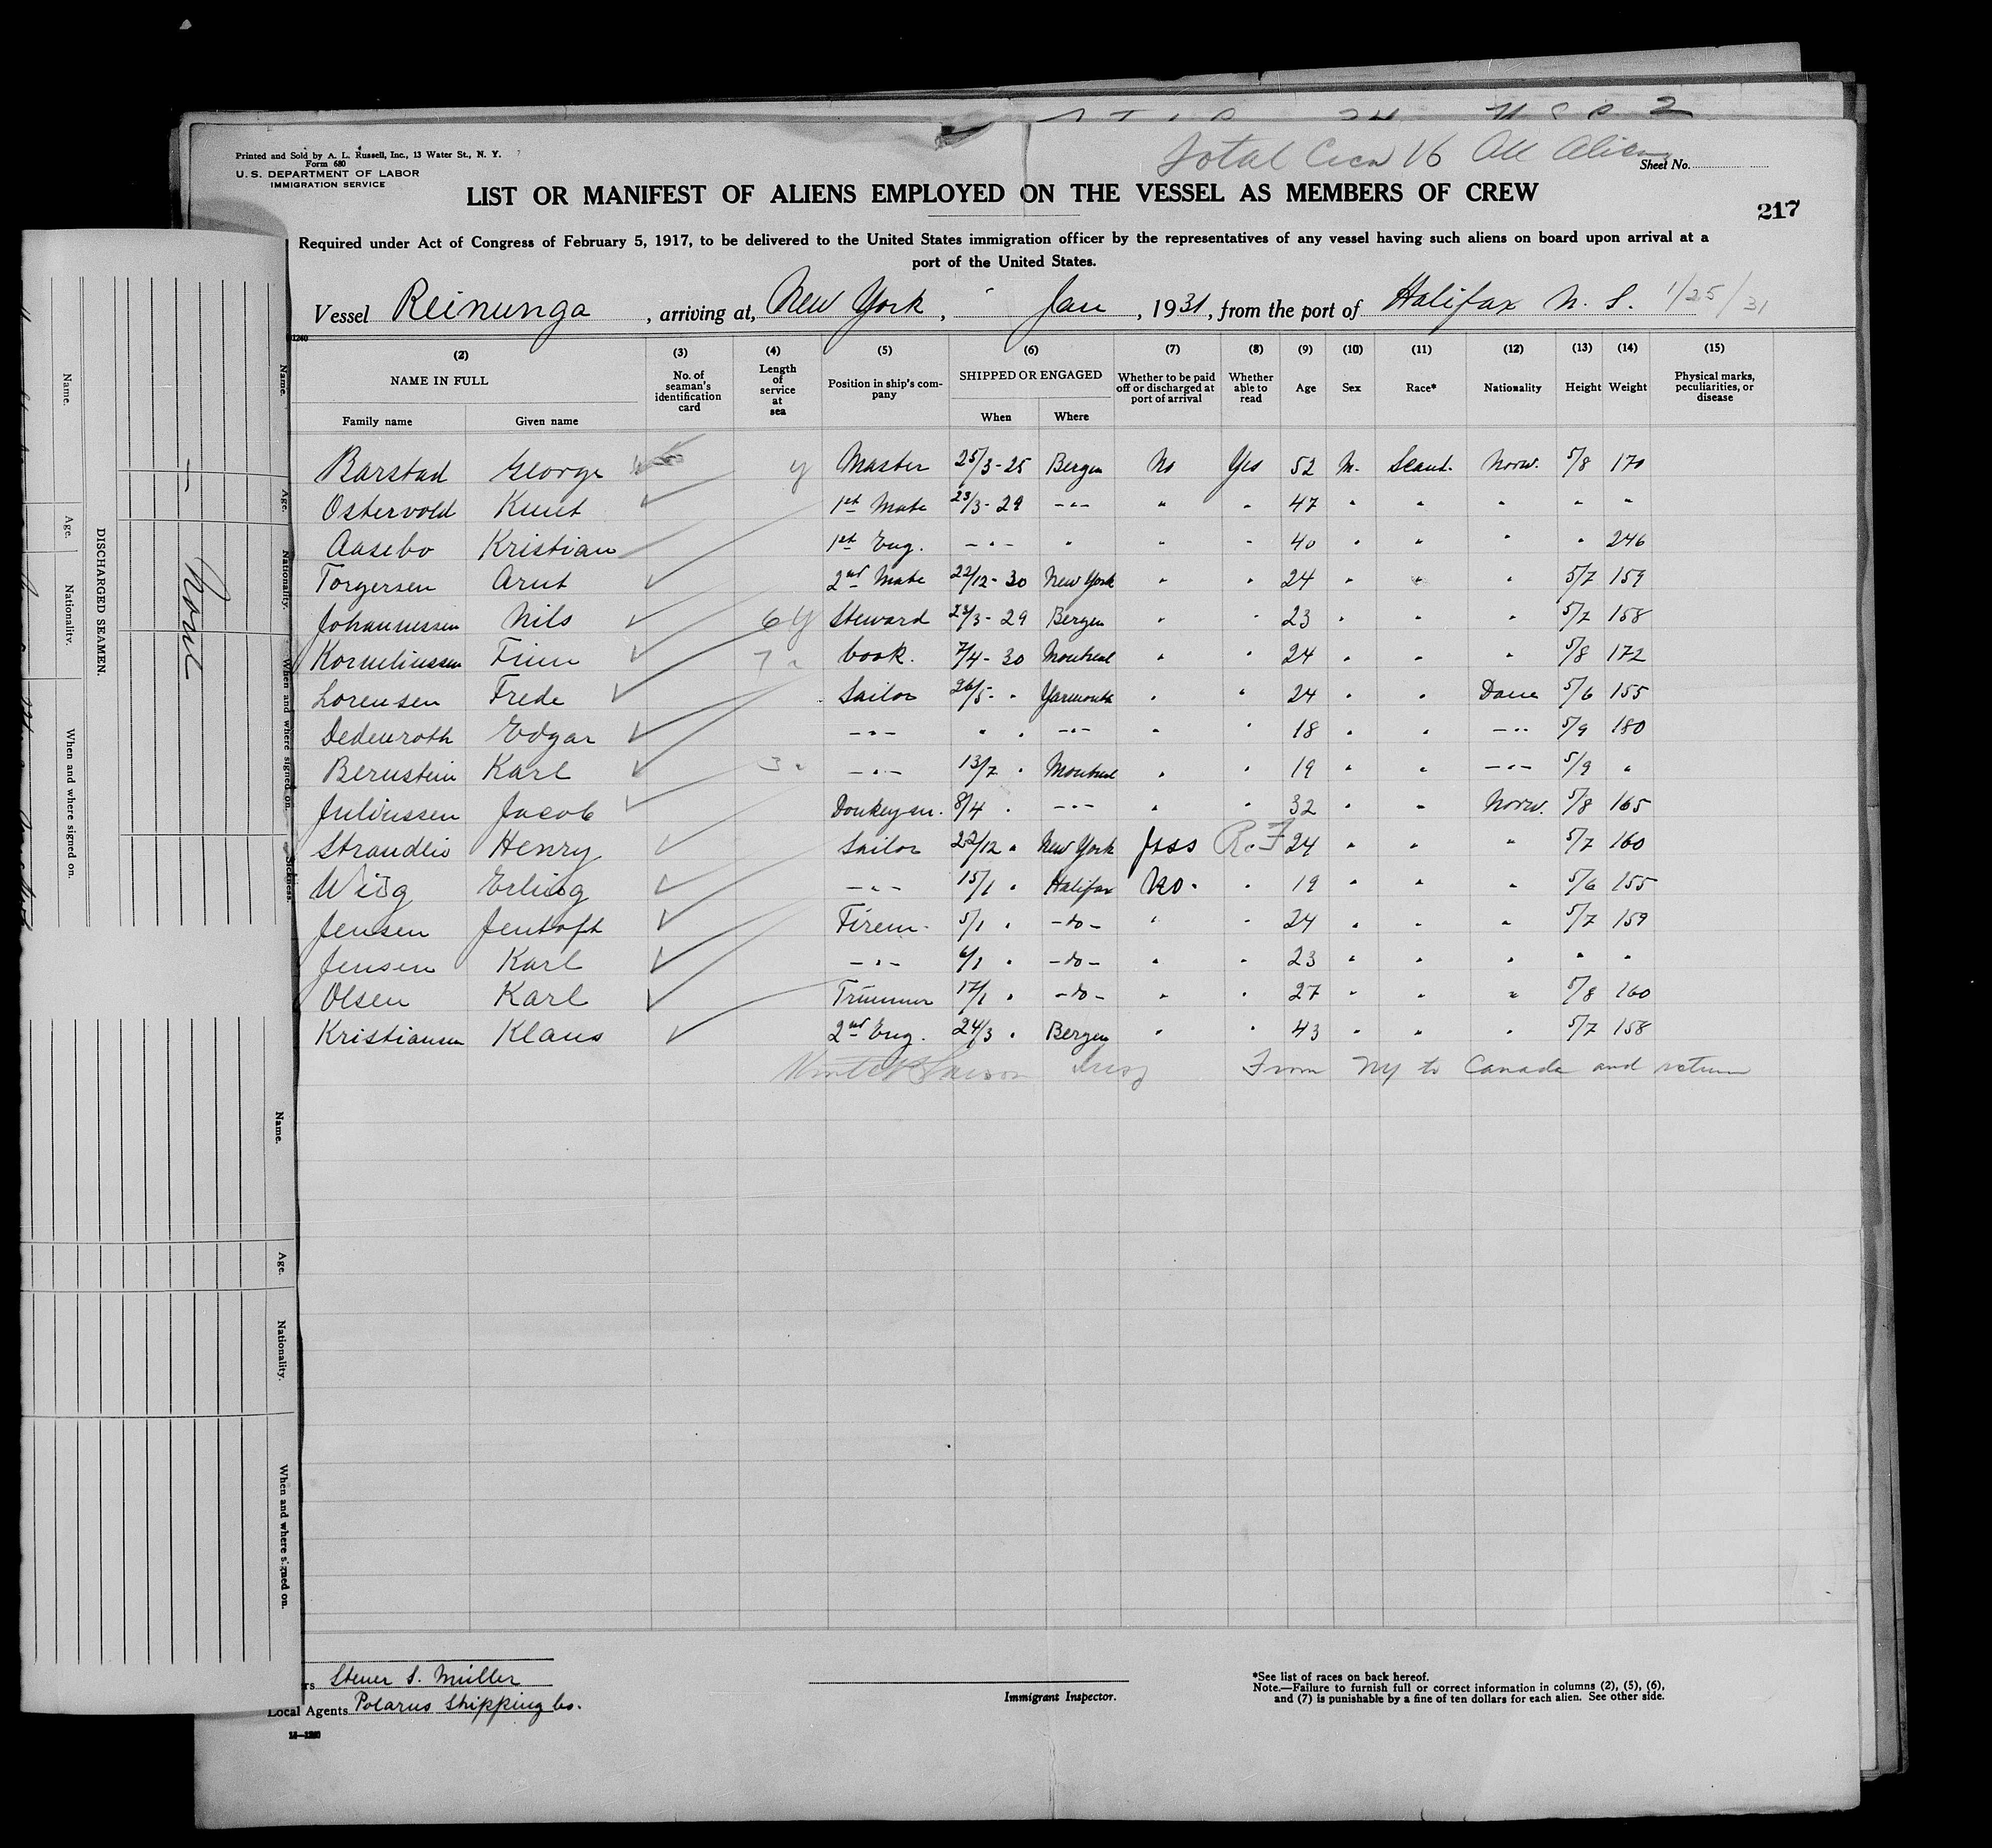 Total Crew 16 All Aliens
Printed and Sold by A. L. Russell, Inc., 13 Water St., N. Y.
Form 680
U. S. DEPARTMENT OF LABOR
IMMIGRATION SERVICE
Sheet No.
LIST OR MANIFEST OF ALIENS EMPLOYED ON THE VESSEL AS MEMBERS OF CREW
217
Required under Act of Congress of February 5, 1917, to be delivered to the United States immigration officer by the representatives of any vessel having such aliens on board upon arrival at a
port of the United States.
Vessel Reinunga, arriving at, New York, Jan, 1931, from the port of Halifax N. S. 1/25/31
(2) (3) (4) (5) (6) (7) (8) (9) (10) (11) (12) (13) (14) (15)
NAME IN FULL No. of seaman's identification card Length of service at sea Position in ship's company SHIPPED OR ENGAGED Whether to be paid off or discharged at port of arrival Whether able to read Age Sex Race* Nationality Height Weight Physical marks, peculiarities, or disease
Family name Given name When Where
Barstad George y Master 25/3-25 Bergen No Yes 52 M. Scand. Norw. 5/8 170
Ostervold Knut 1st Mate 23/3-29 -"- " " 47 " " " " "
Aasebo Kristian 1st Eng. -"- " " " 40 " " " " 246
Torgersen Arnt 2nd Mate 22/12-30 New York " " 24 " " " 5/7 159
Johannessen Nils 6 y Steward 23/3-29 Bergen " " 23 " " " 5/7 158
Korneliussen Finn 7 " Cook. 7/4-30 Montreal " " 24 " " " 5/8 172
Lorensen Frede Sailor 26/5- " Yarmouth " " 24 " " Dane 5/6 155
Dedenroth Edgar -"- " " -"- " " 18 " " -"- 5/9 180
Bernstein Karl 3 " -"- 13/7 " Montreal " " 19 " " -"- 5/9 "
Juliussen Jacob Donkeym. 8/4 " -"- " " 32 " " Norw. 5/8 165
Strandlio Henry Sailor 22/12 " New York Jess R.F 24 " " " 5/7 160
Wiig Erling -"- 15/1 " Halifax No. " 19 " " " 5/6 155
Jensen Jentoft Firem. 5/1 " -do- " " 24 " " " 5/7 159
Jensen Karl -"- 6/1 " -do- " " 23 " " " " "
Olsen Karl Trimmer 17/1 " -do- " " 27 " " " 5/8 160
Kristiansen Klaus 2nd Eng. 24/3 " Bergen " " 43 " " " 5/7 158
From NY to Canada and return
Steuer S. Müller
Local Agents Polarus Shipping Co.
Immigrant Inspector.
*See list of races on back hereof.
Note.—Failure to furnish full or correct information in columns (2), (5), (6),
and (7) is punishable by a fine of ten dollars for each alien. See other side.
14—1240
Name. Age. Nationality. When and where signed on.
DISCHARGED SEAMEN.
None
Name. Age. Nationality. When and where signed on. Sickness.
Name. Age. Nationality. When and where signed on.